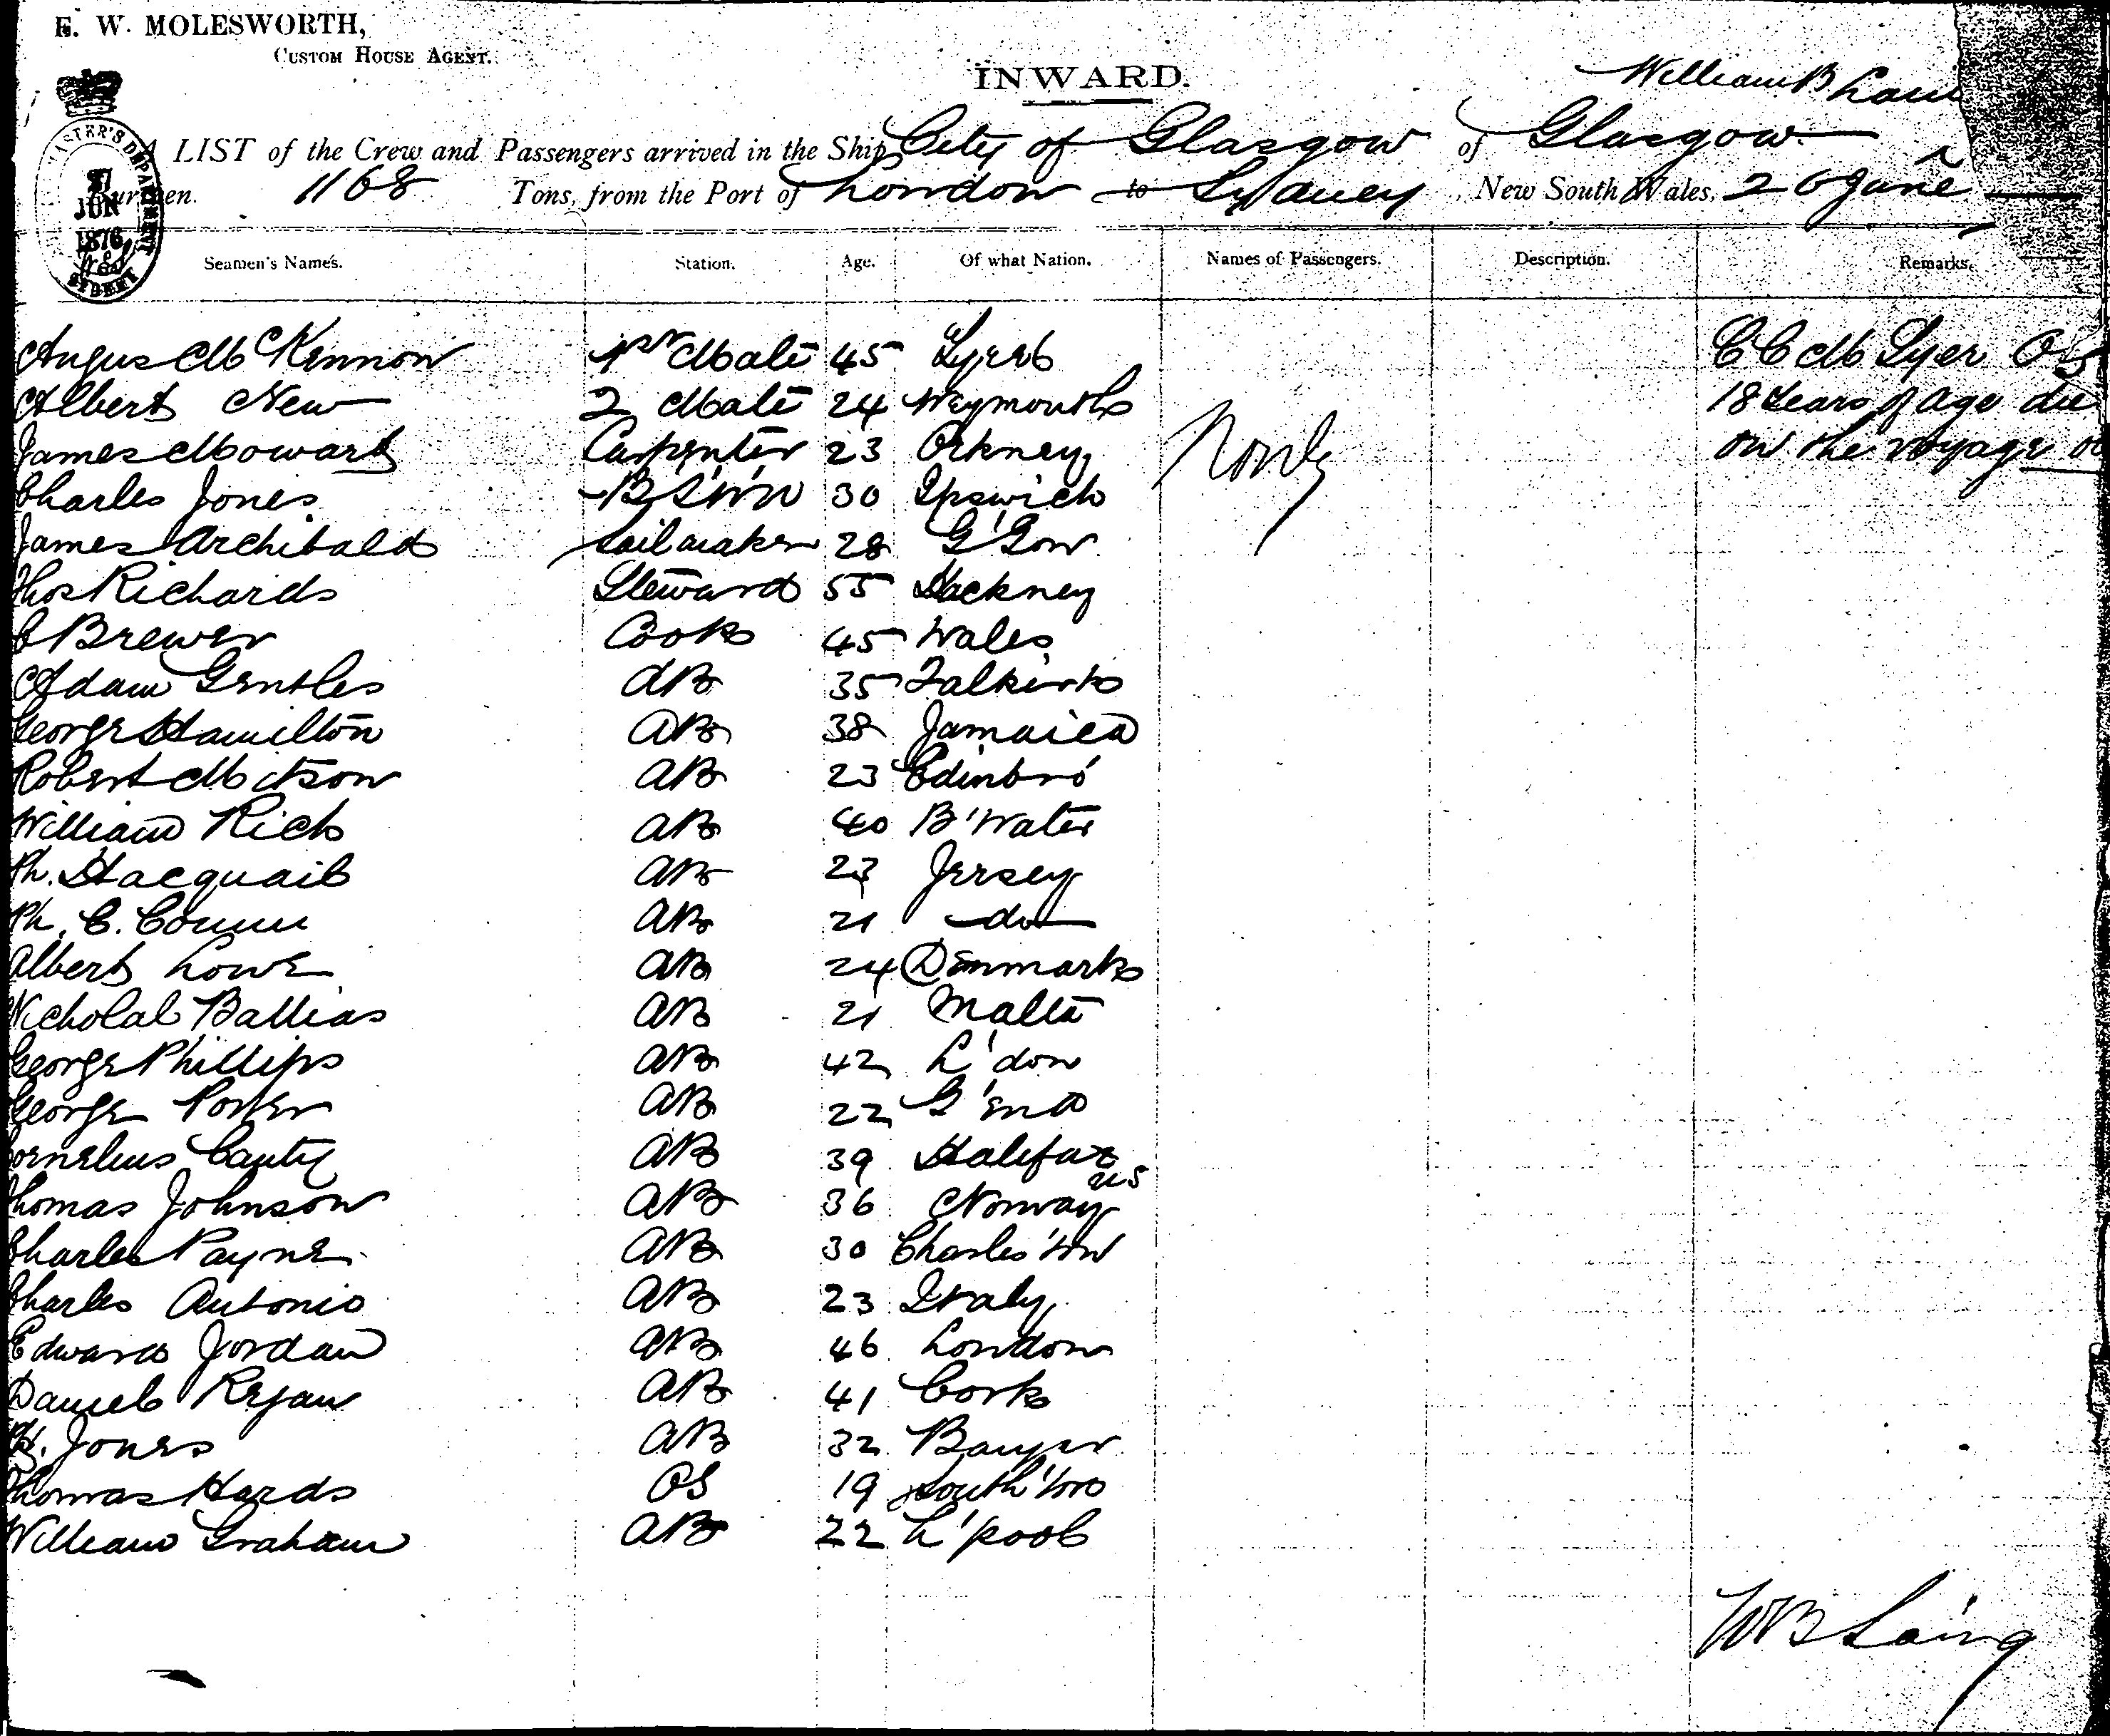 E. W. MOLESWORTH,
CUSTOM HOUSE AGENT.
INWARD.
William B
A LIST of the Crew and Passengers arrived in the Ship City of Glasgow of Glasgow
Burthen 1168 Tons, from the Port of London to Sydney, New South Wales, 26 June
JUN
1876
SYDNEY
Seamen's Names. Station. Age. Of what Nation. Names of Passengers. Description. Remarks.
Angus McKennon 1st Mate 45
Albert New 2 Mate 24 Weymouth
James Carpenter 23 Orkney
Charles Jones 30 Ipswich
James Archibald Sailmaker 28 G'Gow
Thos Richards Steward 55 Hackney
C Brewer Cook 45 Wales
Adam Gentles AB 35 Falkirk
George Hamilton AB 38 Jamaica
Robert AB 23 Edinbro'
William Rich AB 40 B'Water
Ph. Hacquail AB 23 Jersey
Ph. C. AB 21 do
Albert Lowe AB 24 Denmark
Nicholal AB 21 Malta
George Phillips AB 42 L'don
George Porter AB 22
Cornelius Canty AB 39 Halifax
Thomas Johnson AB 36 Norway
US
Charles Payne AB 30 Charles'tn
Charles Antonio AB 23 Italy
Edward Jordan AB 46 London
Daniel Ryan AB 41 Cork
Jones AB 32 Bangor
Thomas Hards OS 19
William Graham AB 22 L'pool
18 Years of age
on the voyage
W B Laing